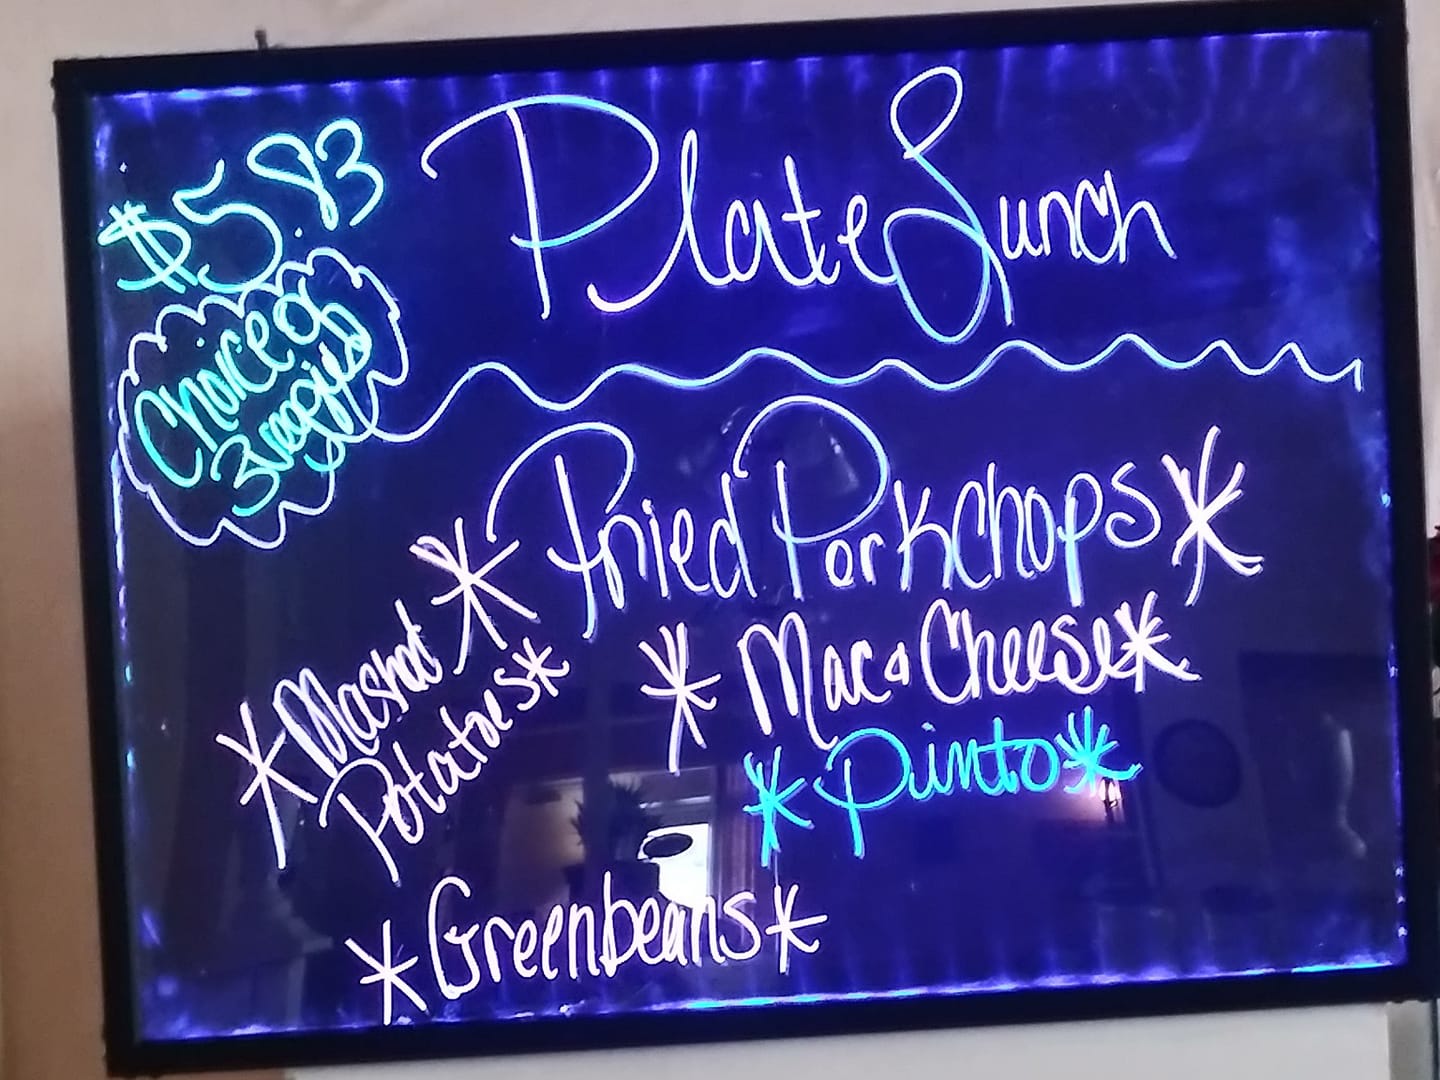 $5.83
Plate Lunch
Choice of
3 veggies
*Fried Porkchops*
*Mashed
Potatoes*
*Mac & Cheese*
*Pinto*
*Greenbeans*